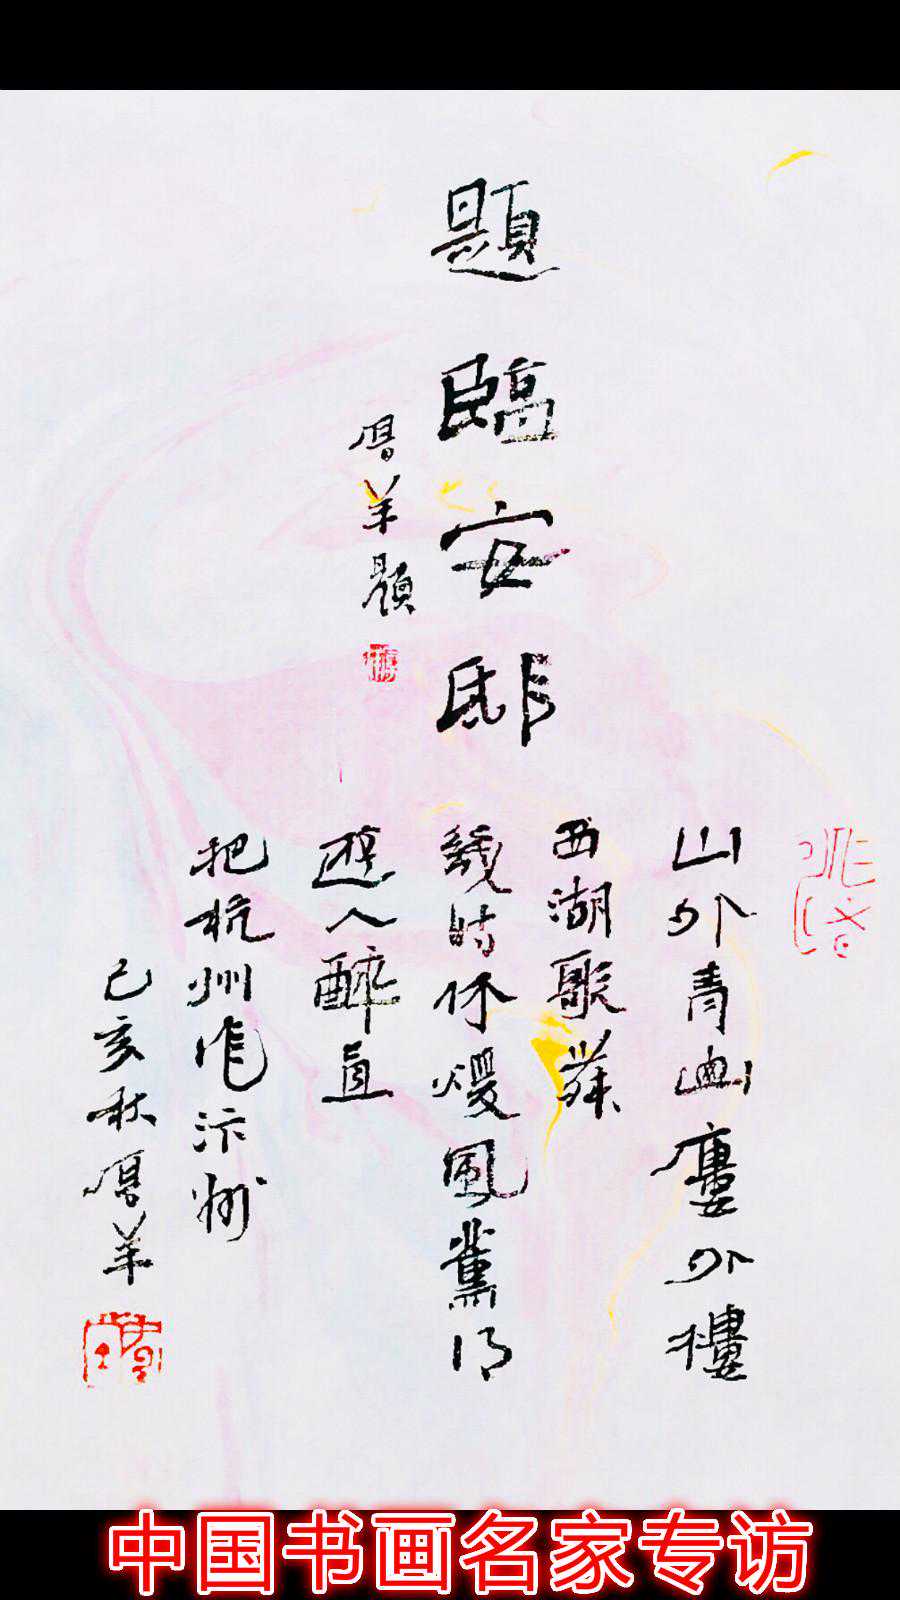 題臨安邸
厚羊題
山外青山廔外樓
西湖歌舞
幾時休煖風薰得
遊人醉直
把杭州作汴州
己亥秋厚羊
中国书画名家专访